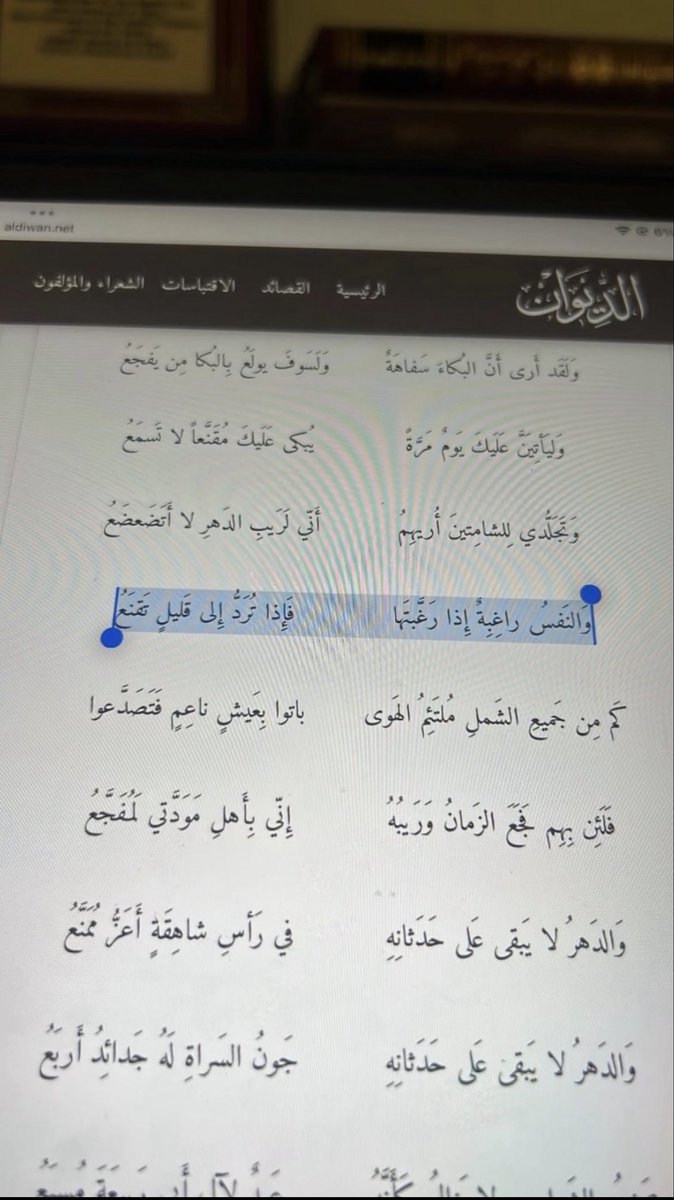 aldiwan.net
6%
الدِّيوَان
الرئيسية القصائد الاقتباسات الشعراء والمؤلفون
وَلَقَد أَرى أَنَّ البُكاءَ سَفاهَةٌ وَلَسَوفَ يولَعُ بِالبُكا مِن يَفجَعُ
وَليَأتِيَنَّ عَلَيكَ يَومٌ مَرَّةً يُبكى عَلَيكَ مُقَنَّعاً لا تَسمَعُ
وَتَجَلُّدي لِلشامِتينَ أُريهِمُ أَنّي لَرَيبِ الدَهرِ لا أَتَضَعضَعُ
وَالنَفسُ راغِبِةٌ إِذا رَغَّبتَها فَإِذا تُرَدُّ إِلى قَليلٍ تَقنَعُ
كَم مِن جَميعِ الشَملِ مُلتَئِمُ الهَوى باتوا بِعَيشٍ ناعِمٍ فَتَصَدَّعوا
فَلَئِن بِهِم فَجَعَ الزَمانُ وَرَيبُهُ إِنّي بِأَهلِ مَوَدَّتي لَمُفَجَّعُ
وَالدَهرُ لا يَبقى عَلى حَدَثانِهِ في رَأسِ شاهِقَةٍ أَعَزُّ مُمَنَّعُ
وَالدَهرُ لا يَبقى عَلى حَدَثانِهِ جَونُ السَراةِ لَهُ جَدائِدُ أَربَعُ